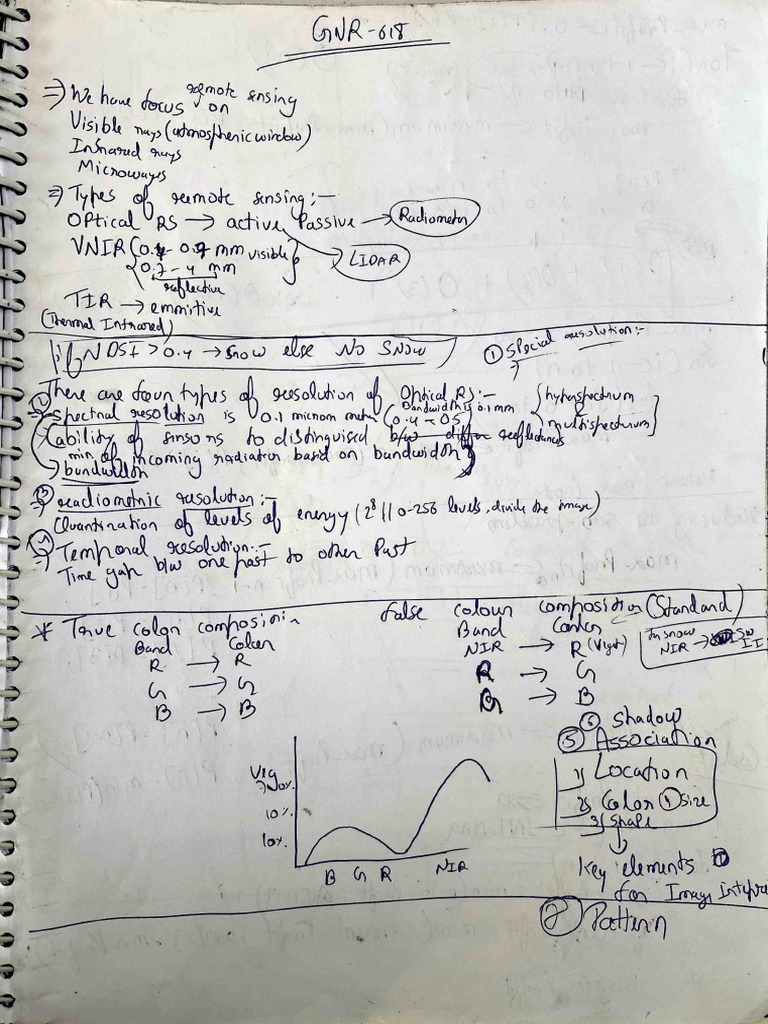 GNR-618
⇒ We have focus on remote sensing
Visible rays (atmospheric window)
Infrared rays
Microwaves
⇒ Types of remote sensing:-
Optical RS → active, Passive → Radiometer
LIDAR
VNIR {0.4 - 0.7 mm visible
0.7 - 4 mm}
reflective
TIR → emmitive
(Thermal Infrared)
If NDSI > 0.4 → Snow else No Snow
① Special resolution:-
There are four types of resolution of Optical RS:-
⇒ Spectral resolution is 0.1 micrometer
Bandwidth is 0.1 mm
0.4 - 05
{hyperspectrum
multispectrum}
(ability of sensors to distinguised b/w reflectances
min. of incoming radiation based on bandwidth)
→ bandwidth
⇒ readiometric resolution:-
Quantination of levels of energy (2⁸ || 0-256 levels, divide the image)
⇒ Temporal resolution:-
Time gap b/w one past to other Past
* True color composition:-
Band Color
R → R
G → G
B → B
False colour composition (Standard)
Band Color
NIR → R (Viget)
R → G
G → B
In snow
NIR → SW
II
Veg
10%
10%
B G R NIR
⑥ Shadow
⑤ Association
1) Location
2) Color ④ size
3) Shape
Key elements
for Image Interpre
⑦ Pattern